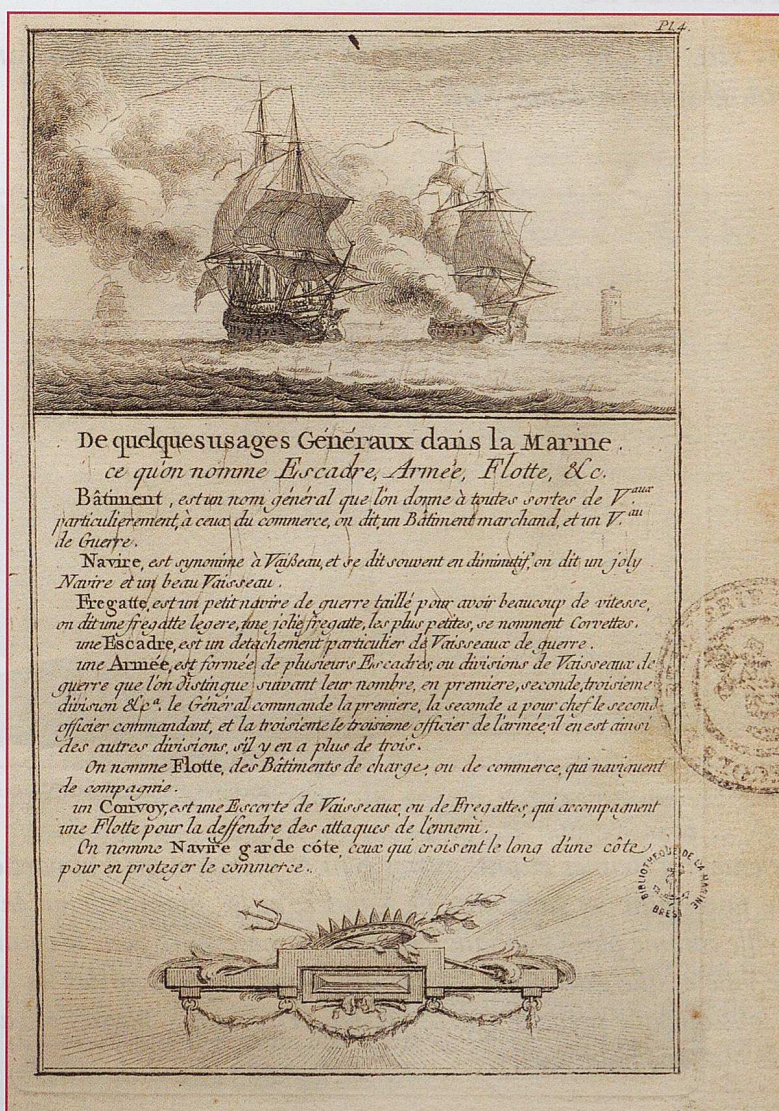 Pl. 4.
De quelques usages Généraux dans la Marine.
ce qu'on nomme Escadre, Armée, Flotte, &c.
Bâtiment, est un nom général que l'on donne à toutes sortes de V.aux
particulierement, à ceux du commerce, on dit, un Bâtiment marchand, et un V.au
de Guerre.
Navire, est synonime à Vaißeau, et se dit souvent en diminutif, on dit un joly
Navire et un beau Vaisseau.
Fregatte, est un petit navire de guerre taillé pour avoir beaucoup de vitesse,
on dit une frégatte legere, une jolie fregatte, les plus petites, se nomment Corvettes.
une Escadre, est un detachement particulier de Vaisseaux de guerre.
une Armée, est formée de plusieurs Escadres, ou divisions de Vaisseaux de
guerre que l'on distingue suivant leur nombre, en premiere, seconde, troisieme
division &c.a le Général commande la premiere, la seconde a pour chef le second
officier commandant, et la troisieme le troisieme officier de l'armée, il en est ainsi
des autres divisions, s'il y en a plus de trois.
On nomme Flotte, des Bâtiments de charge, ou de commerce, qui naviguent
de compagnie.
un Convoy, est une Escorte de Vaisseaux, ou de Fregattes, qui accompagnent
une Flotte pour la deffendre des attaques de l'ennemi.
On nomme Navire garde côte, ceux qui croisent le long d'une côte,
pour en proteger le commerce.
BIBLIOTHEQUE DE LA MARINE
BREST